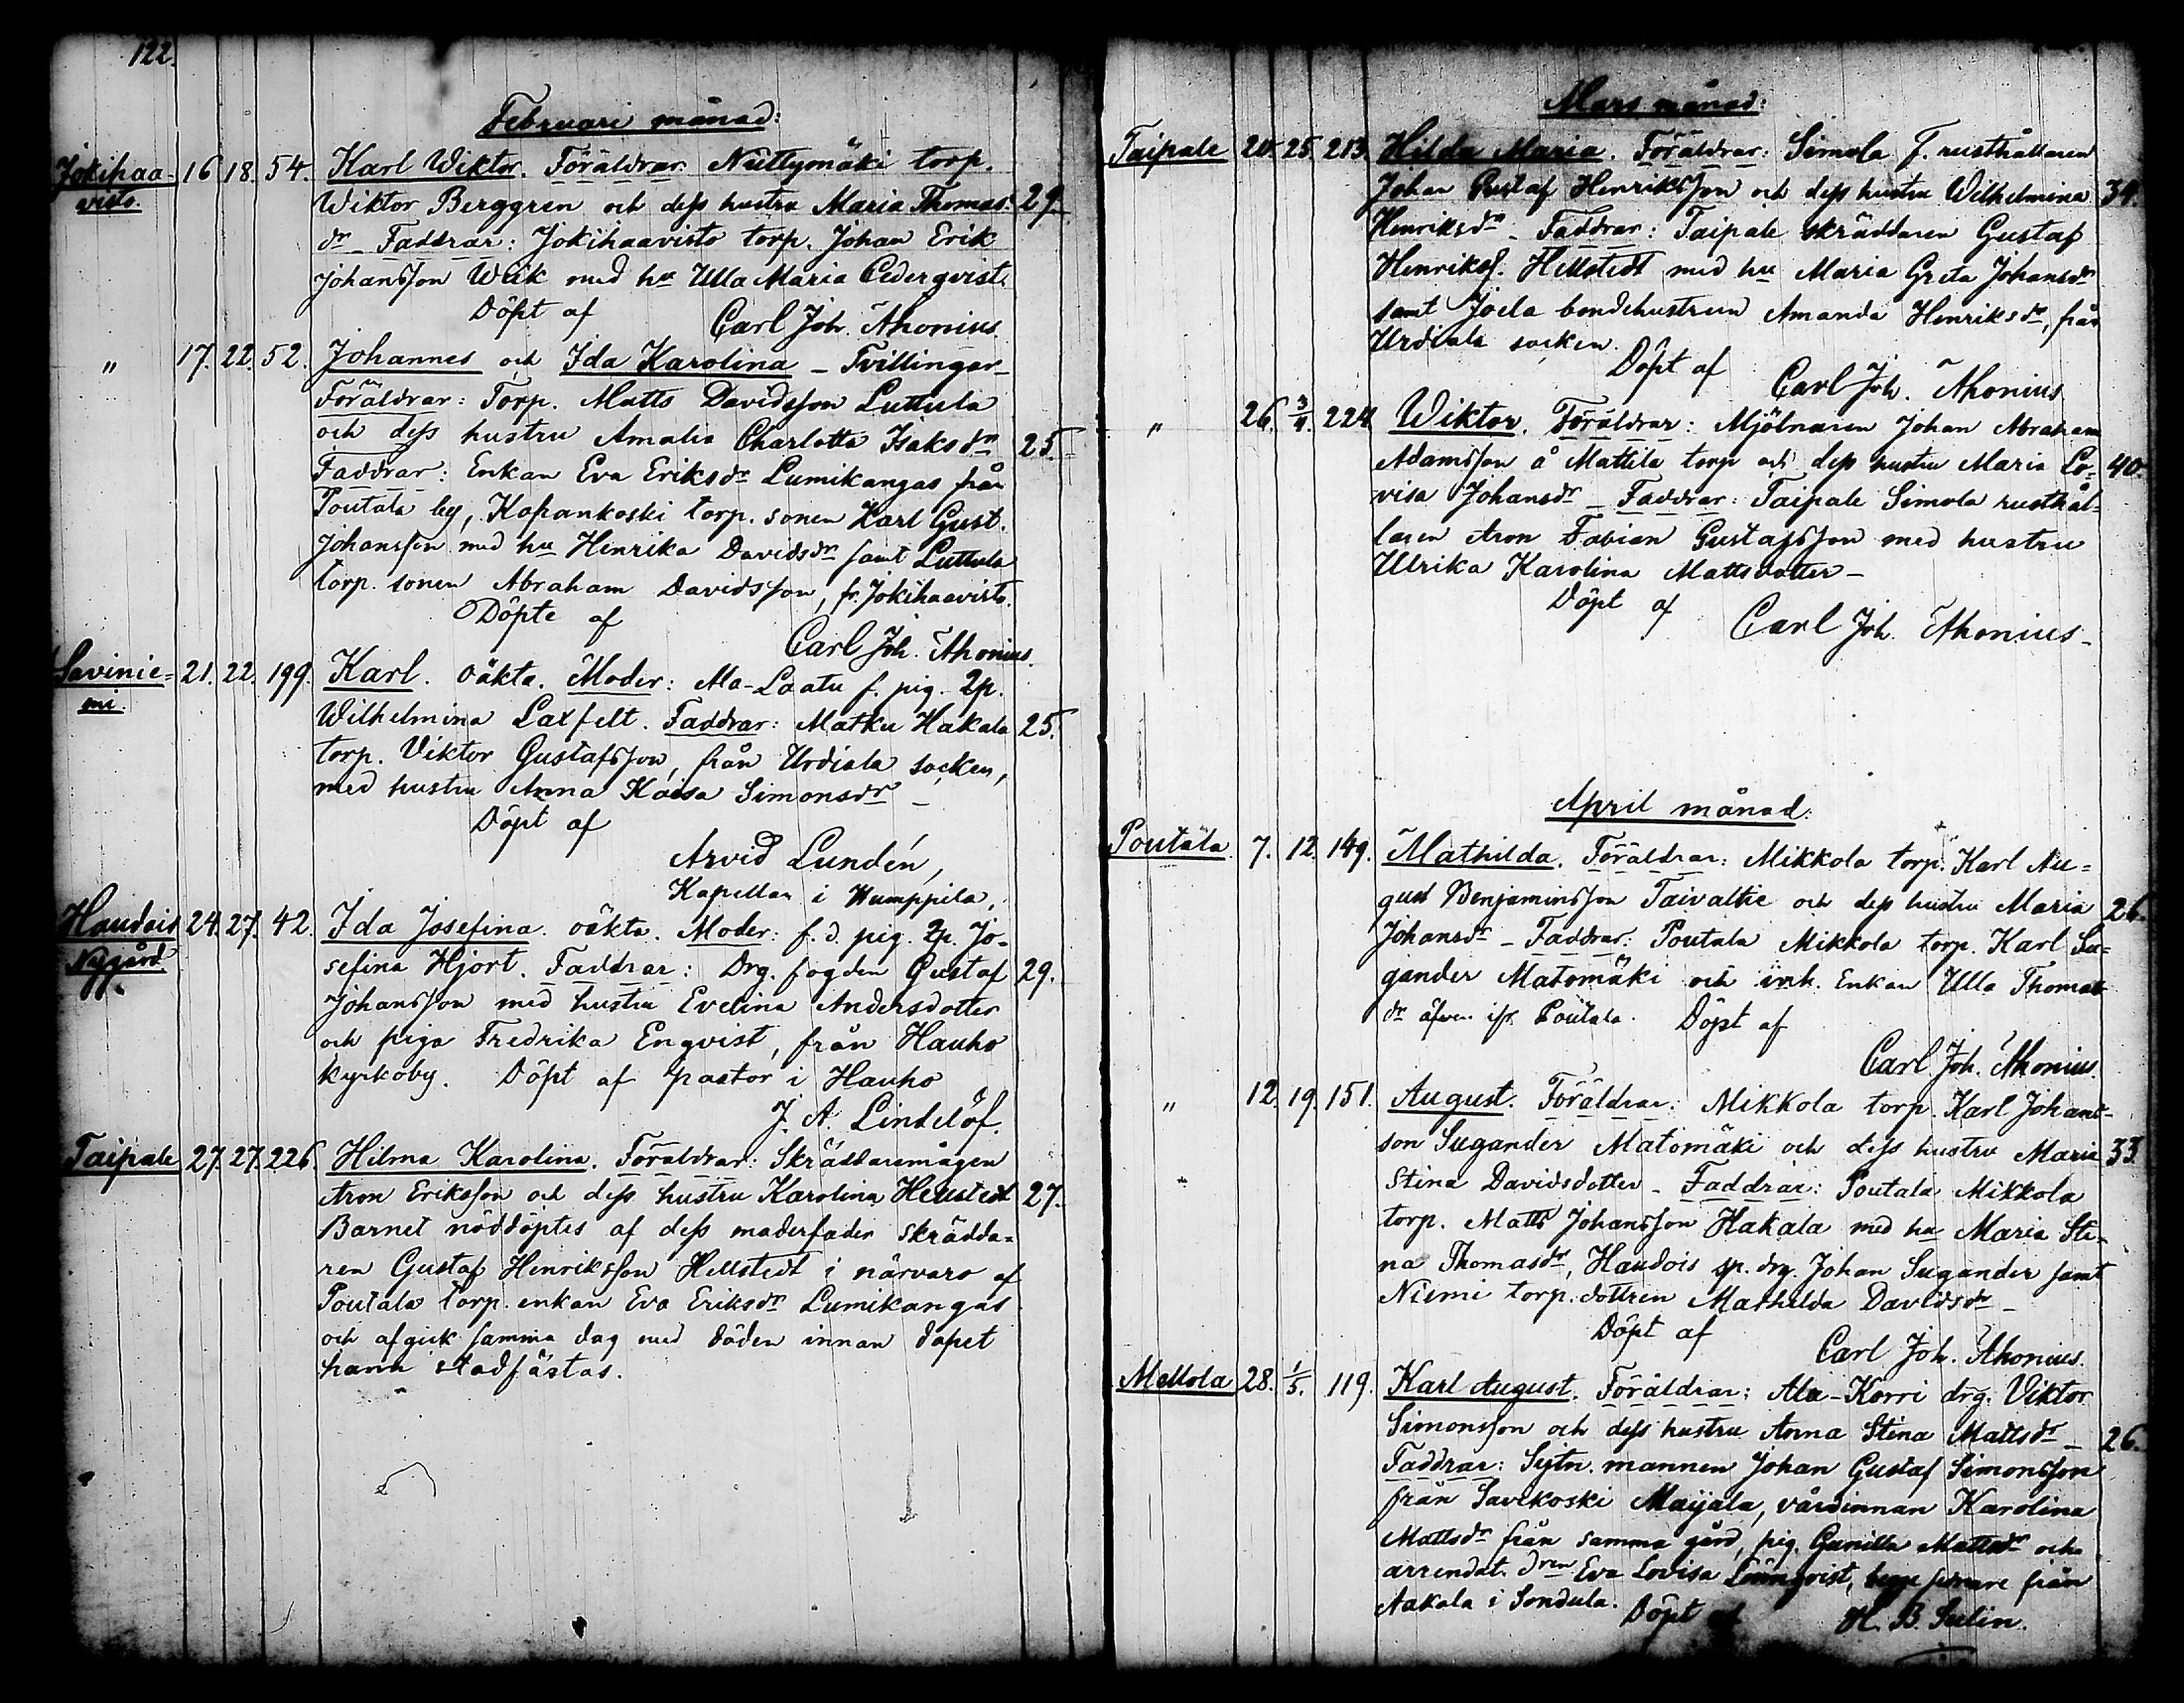 122.
Februari månad:
Jokihaa- 16 18. 54. Karl Wiktor. Föräldrar Nuttymäki torp.
visto. Wiktor Berggren och dess hustru Maria Thomas- 29.
dr _ Faddrar: Jokihaavisto torp. Johan Erik
Johansson Wiik med hu Ulla Maria Cederqvist.
Döpt af Carl Joh. Ahonius.
" 17. 22. 52. Johannes och Ida Karolina _ Tvillingar _
Föräldrar: Torp. Matts Davidsson Luttula
och dess hustru Amalia Charlotta Isaksdr 25.
Faddrar: Enkan Eva Eriksdr Lumikangas från
Poutala by, Kopankoski torp. sonen Karl Gust.
Johansson med hu Henrika Davidsdr samt Luttula
torp. sonen Abraham Davidsson, fr. Jokihaavisto.
Döpte af
Carl Joh. Ahonius.
Savinie= 21. 22. 199. Karl. oäkta. Moder: Ala-Laatu f. pig. 2p.
mi. Wilhelmina Laxfelt. Faddrar: Matku Hakala 25.
torp. Viktor Gustafsson, från Urdiala socken,
med hustru Anna Kaisa Simonsdr _
Döpt af
Arvid Lundén,
Kapellan i Humppila.
Haudois 24. 27. 42. Ida Josefina. oäkta. Moder: f. d. pig. 2p. Jo-
Nygård. sefina Hjort. Faddrar: Drg. fogden Gustaf 29.
Johansson med hustru Evelina Andersdotter
och piga Fredrika Enqvist, från Hauho
kyrkoby. Döpt af pastor i Hauho
J. A. Lindelöf.
Taipale 27. 27. 226. Hilma Karolina. Föräldrar: Skräddaremågen
Aron Eriksson och dess hustru Karolina Hellstedt 27.
Barnet nöddöptes af dess moderfader skrädda-
ren Gustaf Henriksson Hellstedt i närvaro af
Poutala torp. enkan Eva Eriksdr Lumikangas
och afgick samma dag med döden innan dopet
hann stadfästas.
Mars månad:
Taipale 20. 25. 213. Hilda Maria. Föräldrar: Simola f. rusthållaren
Johan Gustaf Henriksson och dess hustru Wilhelmina 34.
Henriksdr _ Faddrar: Taipale skräddaren Gustaf
Henrikss. Hellstedt med hu Maria Greta Johansdr
samt Joela bondehustrun Amanda Henriksdr, från
Urdiala socken.
Döpt af Carl Joh. Ahonius
" 26. 3/4. 224. Wiktor. Föräldrar: Mjölnaren Johan Abraham
Adamsson å Mattila torp och dess hustru Maria Lo- 40.
visa Johansdr _ Faddrar: Taipale Simola rusthål-
laren Aron Fabian Gustafsson med hustru
Ulrika Karolina Mattsdotter _
Döpt af
Carl Joh. Ahonius _
April månad.
Poutala 7. 12. 149. Mathilda. Föräldrar: Mikkola torp. Karl Au=
gust Benjaminsson Taivaltie och dess hustru Maria 26.
Johansdr _ Faddrar: Poutala Mikkola torp. Karl Su=
gander Matomäki och inh. Enkan Ulla Thomas
dr äfven ifr. Poutala. Döpt af
Carl Joh. Ahonius.
" 12. 19. 151. August. Föräldrar: Mikkola torp. Karl Johans-
son Sugander Matomäki och dess hustru Maria 33.
Stina Davidsdotter _ Faddrar: Poutala Mikkola
torp. Matts Johansson Hakala med hu Maria Sti-
na Thomasdr, Haudois sp. drg. Johan Sugander samt
Niemi torp. dottren Mathilda Davidsdr _
Döpt af
Carl Joh. Ahonius.
Mellola 28. 1/5. 119. Karl August. Föräldrar: Ala-Korri drg. Viktor
Simonsson och dess hustru Anna Stina Mattsdr _ 26.
Faddrar: Sytn. mannen Johan Gustaf Simonsson
från Savikoski Maijala, värdinnan Karolina
Mattsdr från samma gård, pig. Gunilla Mattsdr och
arrendat. dren Eva Lovisa Lönnqvist, begge sednare från
Aakala i Sondula. Döpt af H. B. Selin.